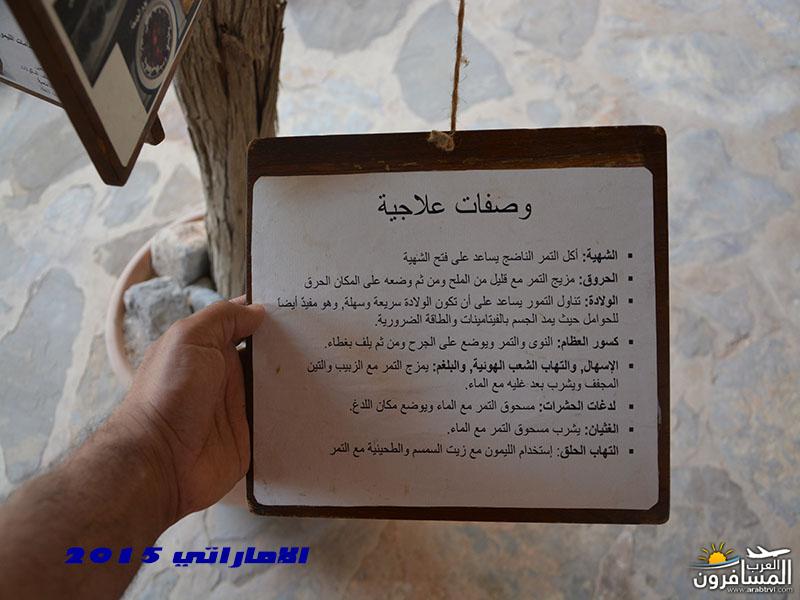 وصفات علاجية
▪ الشهية: أكل التمر الناضج يساعد على فتح الشهية
▪ الحروق: مزيج التمر مع قليل من الملح ومن ثم وضعه على المكان الحرق
▪ الولادة: تناول التمور يساعد على أن تكون الولادة سريعة وسهلة, وهو مفيدٌ أيضاً
للحوامل حيث يمد الجسم بالفيتامينات والطاقة الضرورية.
▪ كسور العظام: النوى والتمر ويوضع على الجرح ومن ثم يلف بغطاء.
▪ الإسهال, والتهاب الشعب الهوئية, والبلغم: يمزج التمر مع الزبيب والتين
المجفف ويشرب بعد غليه مع الماء.
▪ لدغات الحشرات: مسحوق التمر مع الماء ويوضع مكان اللدغ.
▪ الغثيان: يشرب مسحوق التمر مع الماء.
▪ التهاب الحلق: إستخدام الليمون مع زيت السمسم والطحينيّة مع التمر
الاماراتي 2015
العرب
المسافرون
www.arabtrvl.com